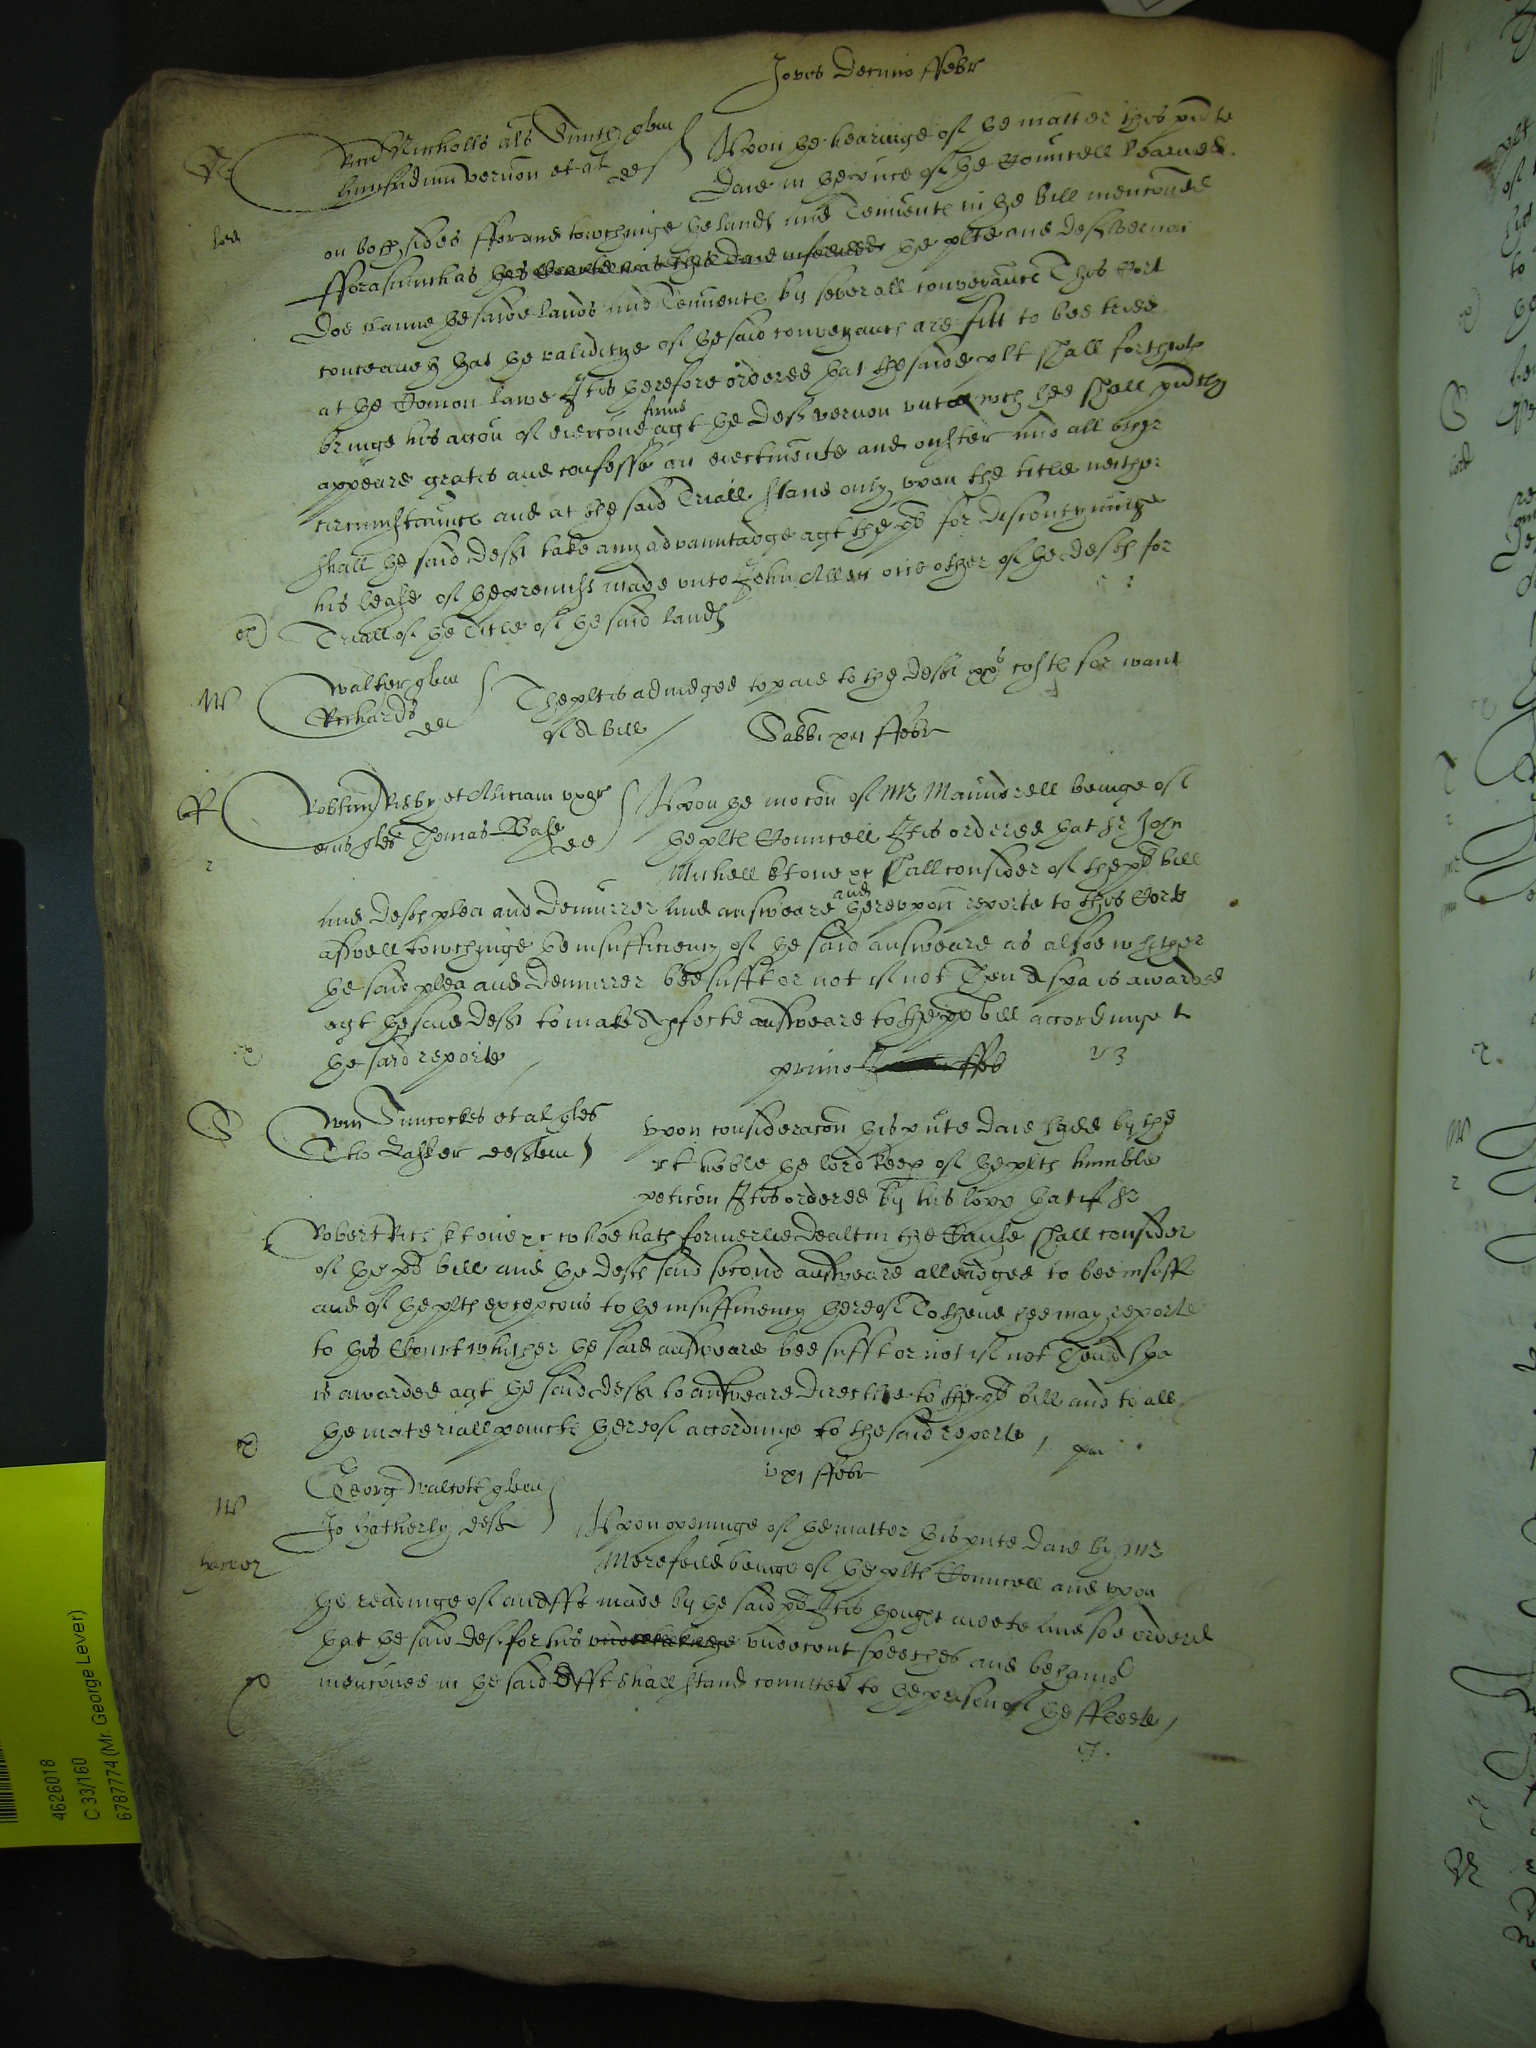 Jovis Decimo ffebr
N
Ric Nicholls als Smith quer
Humfridum Vernon et al def
Upon the hearinge of the matter this pnte
Daie in the pnce of the Councell Learned
on both sides ffor and towchinge the lands and Tenemente in the Bill menconed
fforasmuch as the plte and deft Vernon
Doe clayme the saide lands and Tenemente by severall conveyance This Cort
conceaveth that the validitye of the said conveyance are fitt to bee tried
at the Comon lawe It is therefore ordered that the saide plt shall forthwth
bringe his accon of eieccone firme agt the Deft Vernon unto wch hee shall pndtly
appeare gratis and confesse an eiectmente and ouster and all other
circumstaunce and at the said Triall stand only upon the title neither
shall the said Deft take any advauntadge agt the pl for discontynuinge
his lease of the premiss made unto John Allen one other of the defts for
Triall of the Title of the said lands
W
Walter quer
Richards def
The plt is adiudged to paie to the Deft xxs coste for want
of a Bill
Sabbi xii ffebr
ff
et Miriam uxor
eius ples Thomas def
Upon the mocon of Mr Maundrell beinge of
the plte Councell It is ordered that Sr John
Michell kt one &c shall consider of the pl bill
and defts plea and demurrer and answeare and thereupon reporte to this Corte
aswell towchinge the insufficiency of the said answeare as alsoe whither
the said plea and demurrer bee sufft or not if not Then a spa is awarded
agt the said Deft to make a pfecte answeare to the pl bill accordinge to
the said reporte
primo ffeb
S
Wm Simcockes et al ples
Tho def
Upon consideracon this pnte Daie had by the
rt hoble the lord keep of the plts humble
peticon It is ordered by his lopp that if Sr
Robert Rich kt one &c whoe hath formerlie dealt in the Cause shall consider
of the pl bill and the defts said second answeare alleadged to bee insuff
and of the plts excepcons to the insufficiency thereof To thend hee may reporte
to this Court whither the said answeare bee sufft or not if not Then a spa
is awarded agt the said deft to answeare directlie to the pl bill and to all
the materiall poincte thereof accordinge to the said reporte
xi ffebr
W
Georg Walcott quer
Jo Hatherly deft
Upon openinge of the matter this pnte Daie by Mr
Merefeild beinge of the plts Councell and upon
the readinge of an Afft made by the said pl It is thought meete and soe ordered
that the said deft for his undecent speeches and behavior
menconed in the said Afft shall stand comitted to the prison of the ffleete
4626018
C 33/160
6787774 (Mr. George Lever)